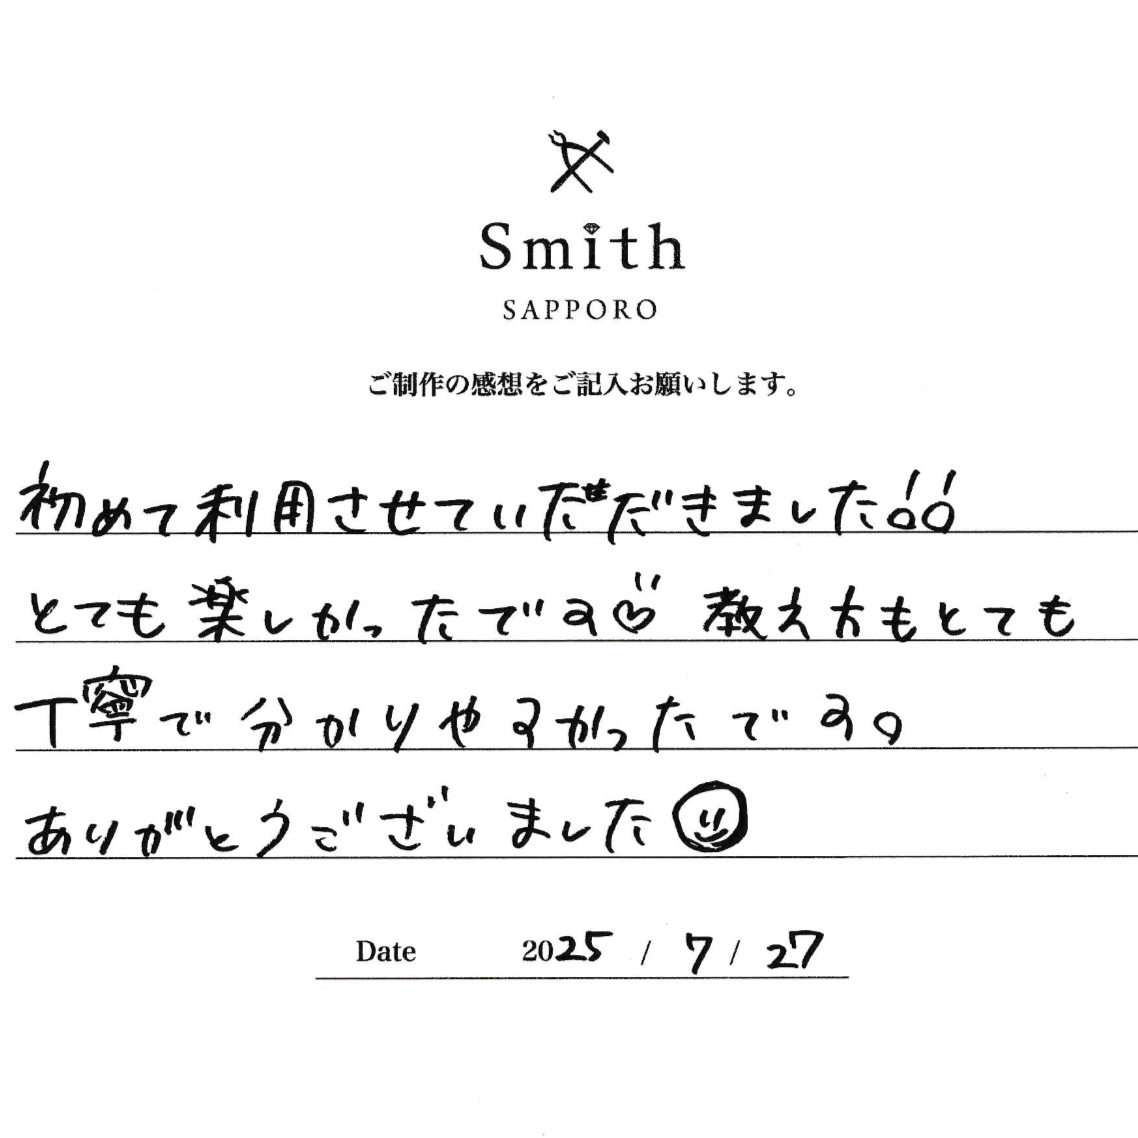 Smith
SAPPORO
ご制作の感想をご記入お願いします。
初めて利用させていただきました!!
とても楽しかったです♡ 教え方もとても
丁寧で分かりやすかったです。
ありがとうございました
Date 2025 / 7 / 27